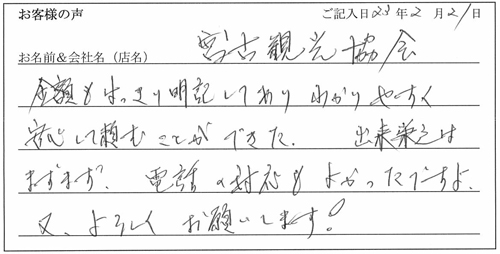 お客様の声 ご記入日23年2月21日
お名前&会社名(店名) 宮古観光協会
金額もはっきり明記してあり わかりやすく
安心して頼むことができた. 出来栄えは
まずまず. 電話の対応もよかったですよ.
又、よろしくお願いします!